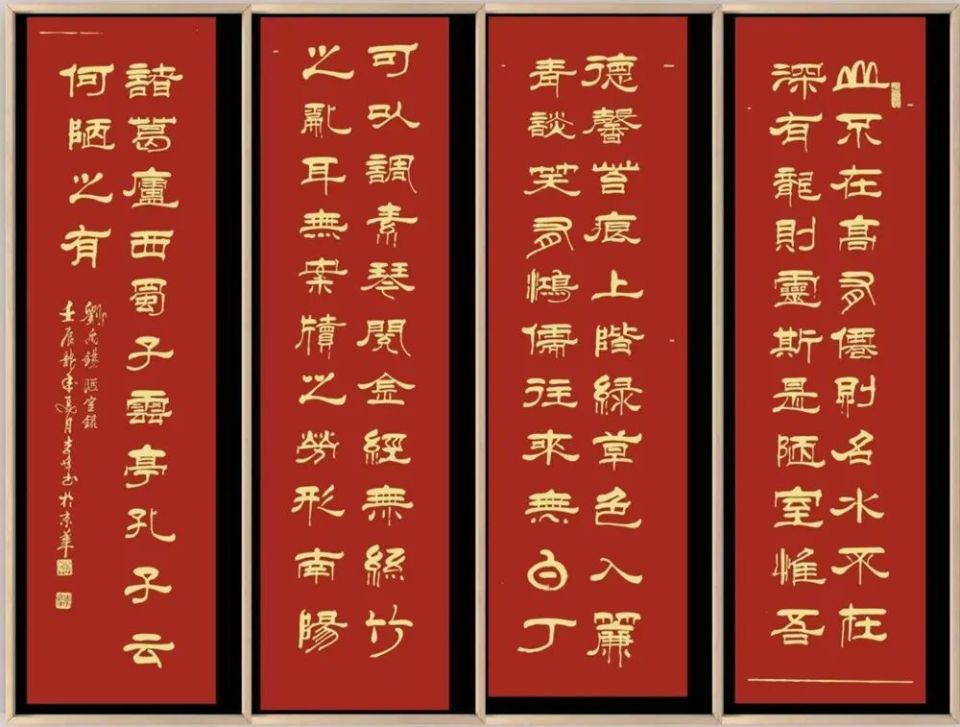 山不在高有僊則名水不在
深有龍則靈斯是陋室惟吾
德馨苔痕上階綠草色入簾
青談笑有鴻儒往來無白丁
可以調素琴閱金經無絲竹
之亂耳無案牘之勞形南陽
諸葛廬西蜀子雲亭孔子云
何陋之有
劉禹錫陋室銘
壬辰龍歲夏月李书於京華